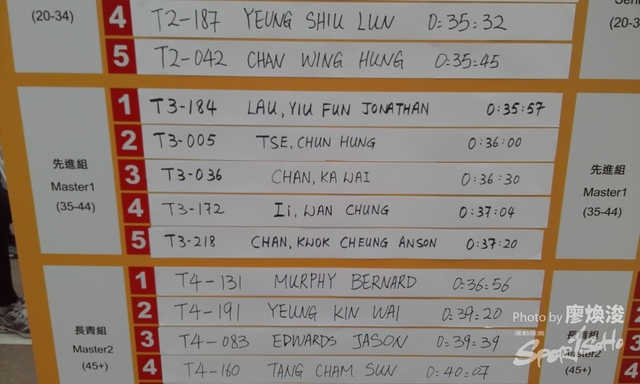 (20-34)
4 T2-187 YEUNG SHIU LUN 0:35:32
5 T2-042 CHAN WING HUNG 0:35:45
先進組
Master1
(35-44)
1 T3-184 LAU, YIU FUN JONATHAN 0:35:57
2 T3-005 TSE, CHUN HUNG 0:36:00
3 T3-036 CHAN, KA WAI 0:36:30
4 T3-172 Ii, WAN CHUNG 0:37:04
5 T3-218 CHAN, KWOK CHEUNG ANSON 0:37:20
先進組
Master1
(35-44)
長青組
Master2
(45+)
1 T4-131 MURPHY BERNARD 0:36:56
2 T4-191 YEUNG KIN WAI 0:39:20
3 T4-083 EDWARDS JASON 0:39:39
4 T4-160 TANG CHAM SUN 0:40:07
長青組
Master2
(45+)
2
3
4
Photo by 廖煥浚
SportSoHo